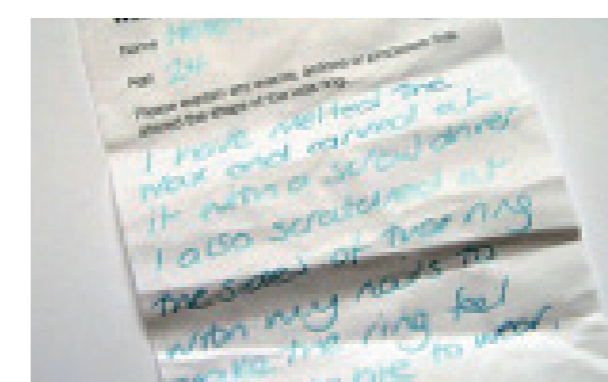 Name Helen
Age 24
Please explain any events, actions or processes that
altered the shape of the wax ring.
I have melted the
wax and carved at
it with a screwdriver
I also scratched at
the sides of the ring
with my nails to
make the ring feel
to wear.